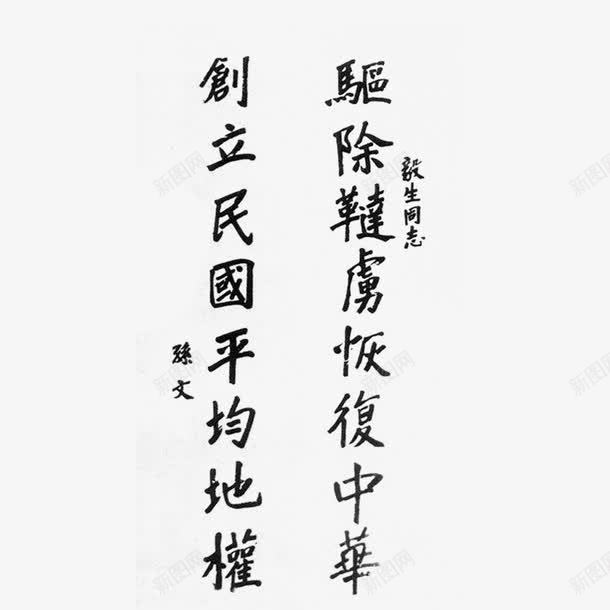 毅生同志
驅除韃虜恢復中華
創立民國平均地權
孫文
新图网